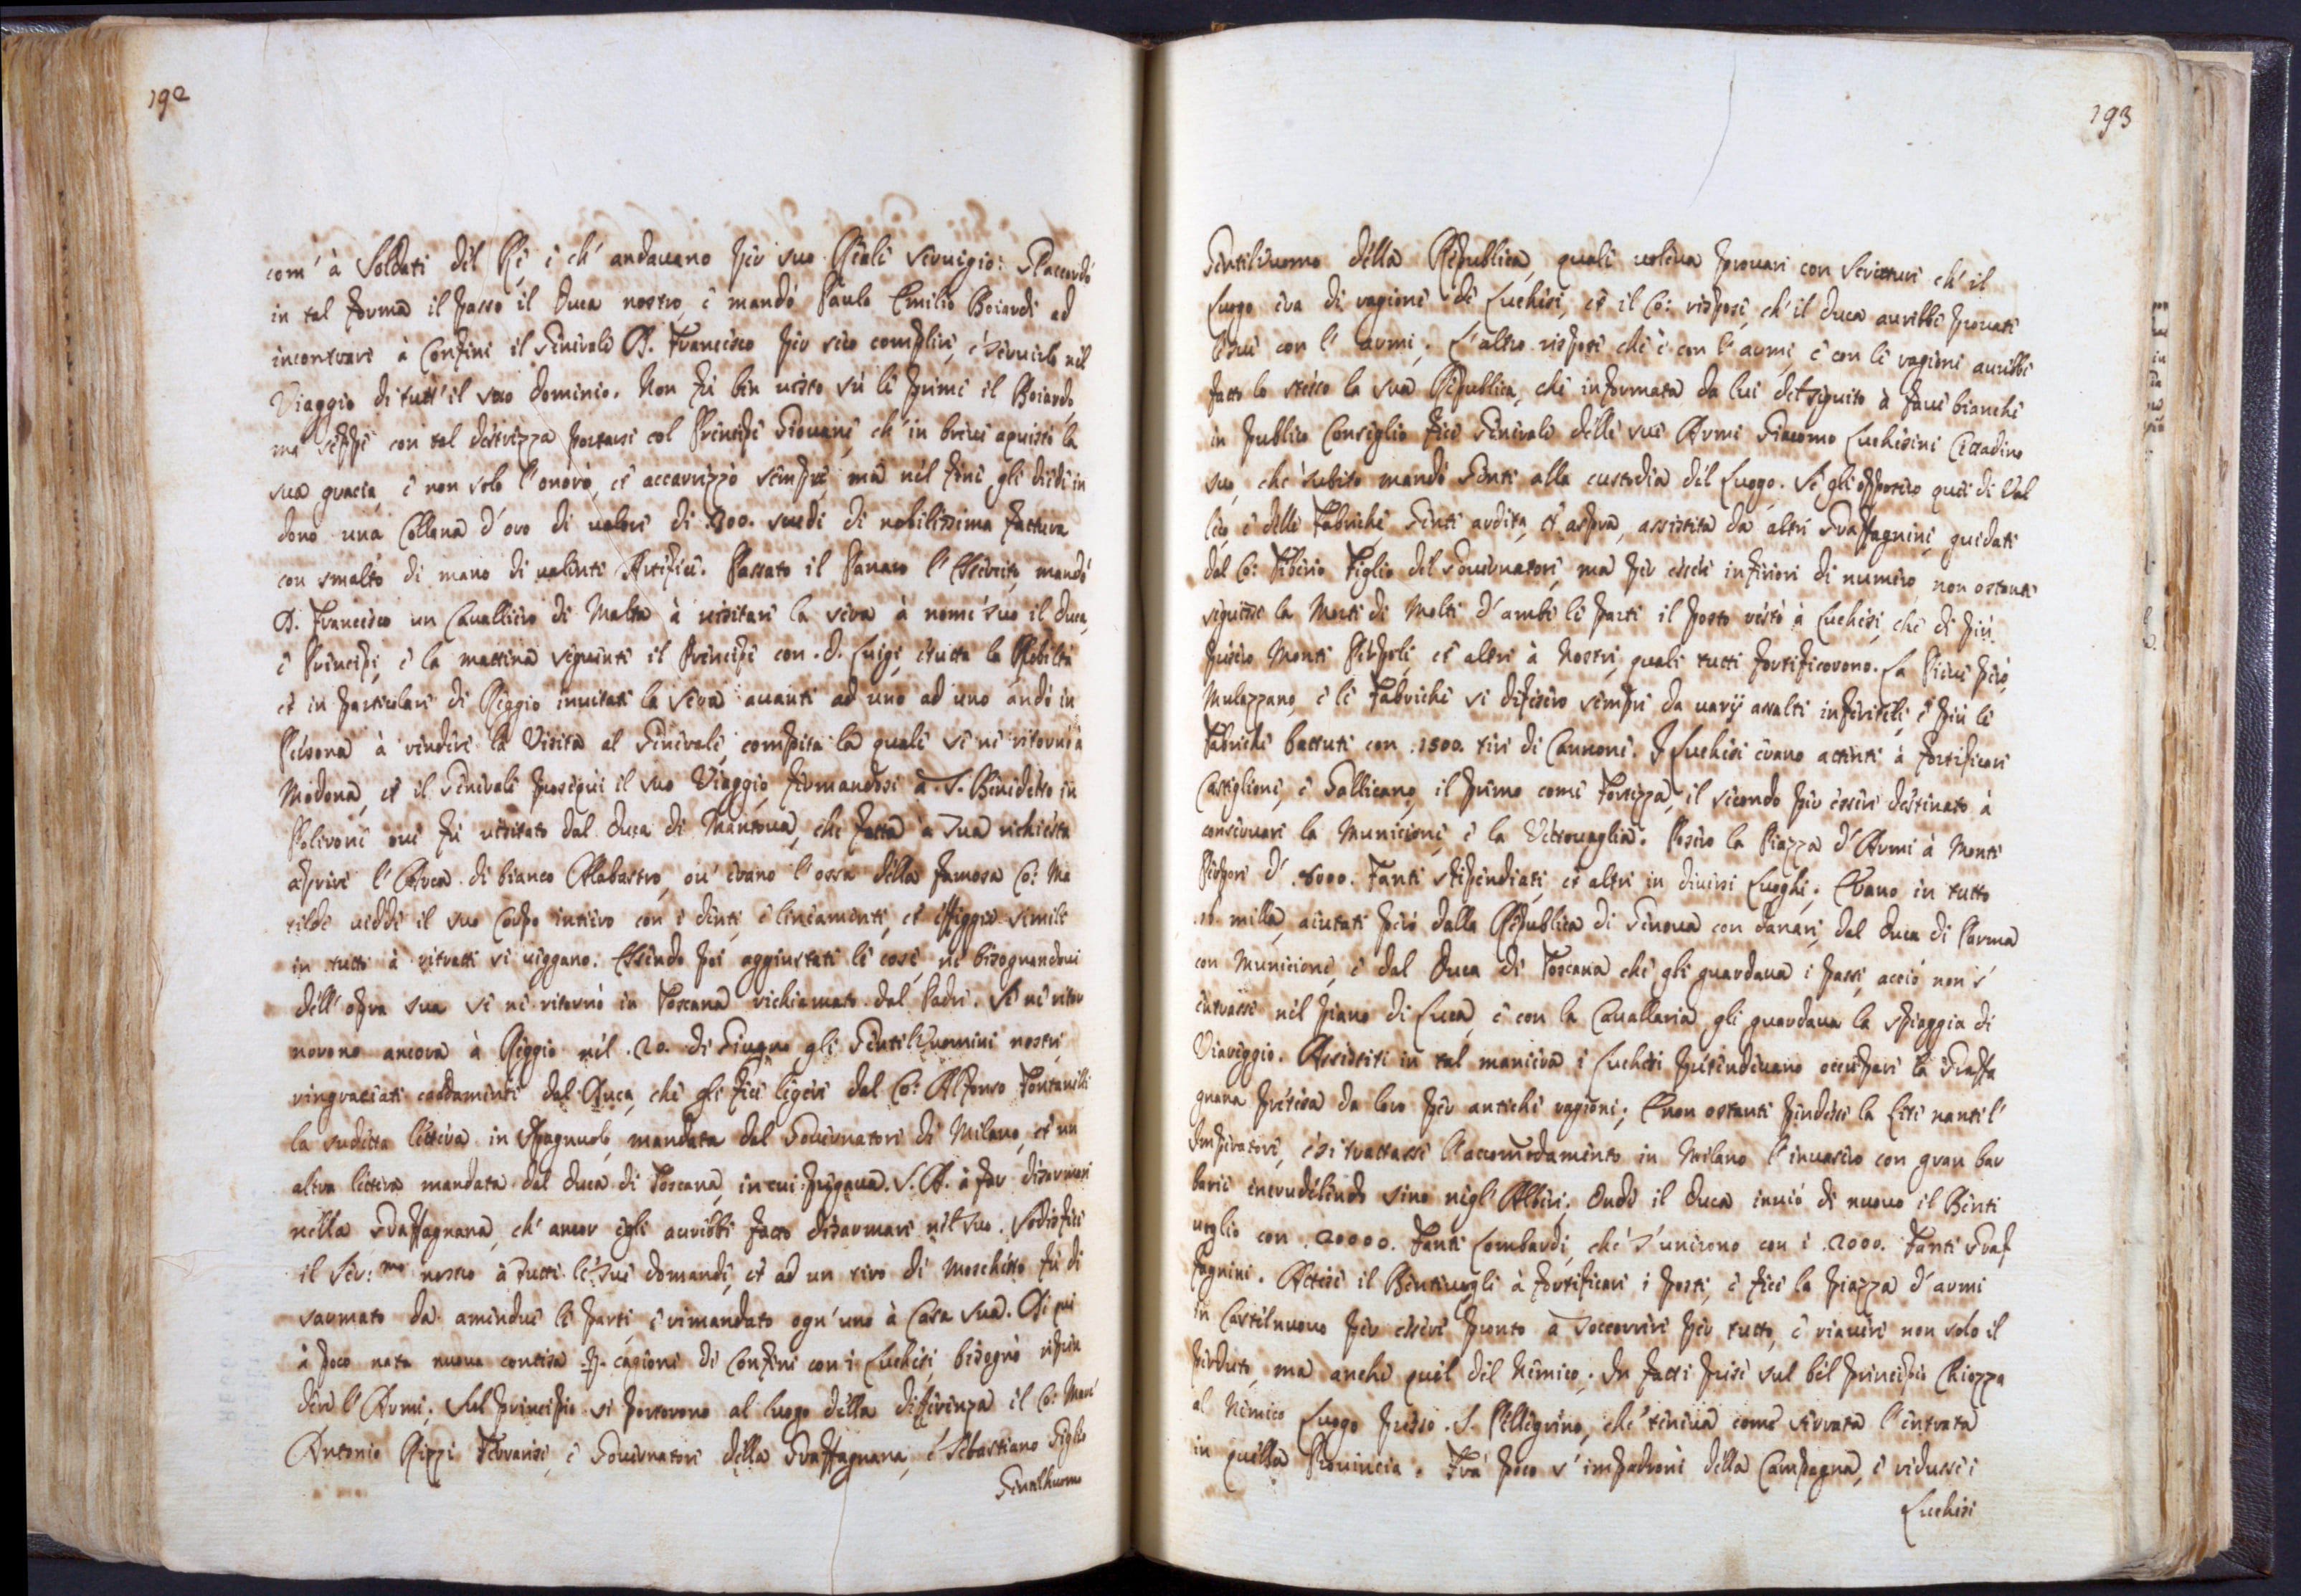 192
com' à Soldati del Rè e ch' andauano per suo Reale seruigio: S'accordò
in tal forma il passo il Duca nostro, e mandò Paulo Emilio Boiardi ad
incontrare à Confini il Generale D. Francesco per seco complire, e seruirlo nel
Viaggio di tutt' il suo dominio. Non fù ben uisto sù le prime il Boiardo,
ma seppe con tal destrezza portarsi col Principe Giouane, ch' in breue aquistò la
sua gracia, e non solo l'onorò, et accarezzò sempre, mà nel fine gli diede in
dono una Collana d'oro di ualore di 300. scudi di nobilissima fattura
con smalto di mano di ualenti Artefici. Passato il Panaro l'Essercito, mandò
D. Francesco un Caualliero di Malta à uisitare la sera à nome suo il Duca,
e Principe, e la mattina seguente il Principe con D. Luigi, e tutta la Nobiltà
et in particolare di Reggio inuitati la sera auanti ad uno ad uno andò in
Persona à rendere la Visita al Generale, compita la quale se ne ritornò à
Modona, et il Generale proseguì il suo Viaggio, fermandosi à S. Benedetto in
Polirone oue fù uisitato dal Duca di Mantoua, che fatta à sua richiesta
aprire l'Arca di bianco Alabastro, ou' erano l'ossa della famosa Co: Ma
tilde uidde il suo Corpo intiero con i denti, e lineamenti, et effiggie simile
in tutto à ritratti si ueggano. Essendo poi aggiustate le cose, ne bisognandoui
dell' opra sua se ne ritornò in Toscana richiamato dal Padre. Se ne ritor
norono ancora à Reggio nel .20. di Giugno gli Gentilhuomini nostri
ringraciati caldamente dal Duca, che gli fece legere dal Co: Alfonso Fontanelli
la sudetta lettera in Spagnuolo, mandata dal Gouernatore di Milano, et un
altra lettera mandata dal Duca di Toscana, in cui pregaua S. A. à far disarmare
nella Graffagnana, ch' ancor egli aurebbe fatto disarmare nel suo. Sodisfece
il Ser:mo nostro à tutte le sue domande, et ad un tiro di Moschetto fù di
sarmato da amendue le parti, e rimandato ogn' uno à Casa sua. Di qui
à poco nata nuoua contesa p cagione di Confini con i Luchesi, bisognò ripren
dere l'Armi. Sul principio si portorono al luogo della differenza il Co: Marc'
Antonio Rizzi Ferrarese, e Gouernatore della Graffagnana, e Sebastiano Giglio
Gentilhuomo
193
Gentilhuomo della Republica, quale uoleua prouare con Scritture ch' il
Luogo era di ragione di Luchesi, et il Co: rispose, ch' il Duca aurebbe prouate
le sue con l'armi. L'altro rispose che e con l'armi, e con le ragioni aurebbe
fatto lo stesso la sua Republica, che informata da lui del seguito à faue bianche
in publico Consiglio fece Generale delle sue Armi Giacomo Luchesini Cittadino
suo, che subito mandò Genti alla custodia del Luogo. Se gli opposero quei di Val
lico e delle Fabriche, Genti ardita, et aspra, assistita da altri Graffagnini, guidati
dal Co: Tiberio Figlio del Gouernatore, mà per essere inferiori di numero non ostante
seguisse la Morte di Molti d'ambe le parti il posto restò à Luchesi, che di più
presero Monte Perpoli, et altri à Nostri, quali tutti fortificorono. La Pieue però,
Mulazzano, e le Fabriche si difesero sempre da uarij assalti inferitili, e più le
Fabriche battute con .1500. tiri di Cannone. I Luchesi erano attenti à fortificare
Castiglione, e Gallicano, il primo come Fortezza, il secondo per essere destinato à
conseruare la Municione, e la Vettouaglia. Posero la Piazza d'Armi à Monte
Perpore d' .6000. Fanti stipendiati, et altri in diuersi Luoghi. Erano in tutto
16 milla, aiutati però dalla Republica di Genoua con danari, dal Duca di Parma
con Municione, e dal Duca di Toscana che gli guardaua i passi, acciò non s'
entrasse nel piano di Luca, e con la Cauallaria gli guardaua la spiaggia di
Viareggio. Assistiti in tal maniera i Luchesi pretendeuano occupare la Graffa
gnana pretesa da loro per antiche ragioni; E non ostante pendesse la Lite nanti l'
Imperatore, e si trattasse l'accomodamento in Milano l'inuasero con gran bar
barie incrudelendo sino negl' Alberi. Onde il Duca inuiò di nuouo il Benti
uoglio con .20000. Fanti Lombardi, che s'unirono con i .2000. Fanti Graf
fagnini. Attese il Bentiuogli à fortificare i posti, e fece la piazza d'armi
in Castelnuouo per essere pronto à soccorrere per tutto, e riauere non solo il
perduto, ma anche quel del Nemico. In fatti prese sul bel principio Chiozza
al Nemico Luogo presso S. Pellegrino, che teneua come serrata l'entrata
in quella Prouincia. Frà poco s'impadronì della Campagna, e ridusse i
Luchesi